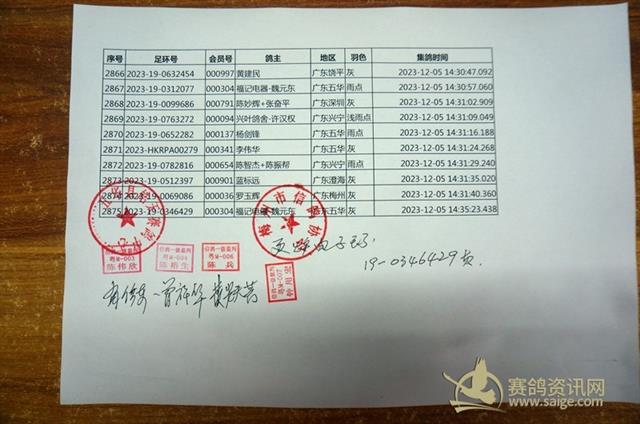 序号 足环号 会员号 鸽主 地区 羽色 集鸽时间
2866 2023-19-0632454 000997 黄建民 广东饶平 灰 2023-12-05 14:30:47.092
2867 2023-19-0312077 000304 福记电器-魏元东 广东五华 雨点 2023-12-05 14:30:57.060
2868 2023-19-0099686 000791 陈妙辉+张奋平 广东深圳 灰 2023-12-05 14:31:02.909
2869 2023-19-0763272 000094 兴叶鸽舍-许汉权 广东兴宁 浅雨点 2023-12-05 14:31:09.049
2870 2023-19-0652282 000137 杨剑锋 广东五华 雨点 2023-12-05 14:31:16.188
2871 2023-HKRPA00279 000341 李伟华 广东五华 灰 2023-12-05 14:31:24.268
2872 2023-19-0782816 000654 陈智杰+陈振帮 广东兴宁 雨点 2023-12-05 14:31:29.240
2873 2023-19-0512397 000901 蓝标远 广东澄海 灰 2023-12-05 14:31:35.020
2874 2023-19-0069086 000036 罗玉辉 广东梅州 灰 2023-12-05 14:31:40.360
2875 2023-19-0346429 000304 福记电器-魏元东 广东五华 灰 2023-12-05 14:35:23.438
梅州市信鸽协
信鸽一级裁判
粤M-003
陈伟欣
信鸽一级裁判
粤M-004
信鸽一级裁判
粤M-006
陈兵
信鸽一级裁判
粤M-007
19-0346429
赛鸽资讯网
www.saige.com